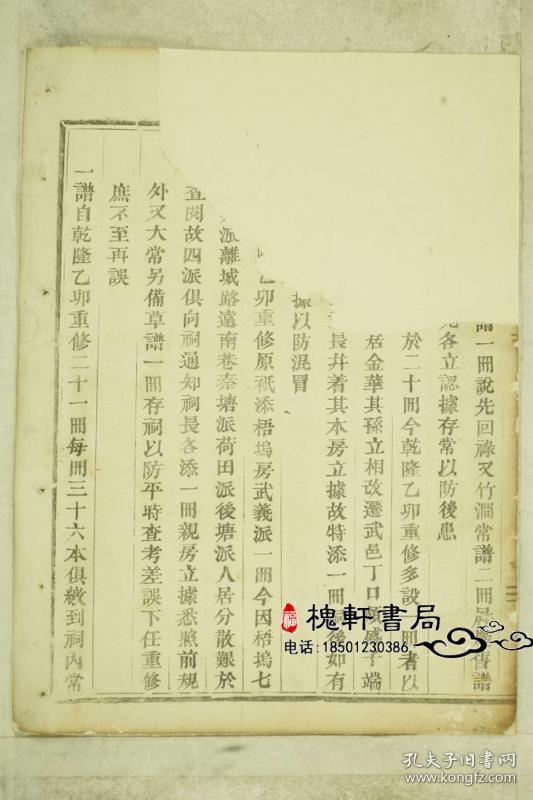 譜一冊說先回祿又竹澗常譜二冊
各立認據存常以防後患
於二十冊今乾隆乙卯重修多設一冊者以
居金華其孫立相改遷武邑丁口
長并着其本房立據故特添一冊後如有
據以防混冒
乙卯重修原祇添梧塢房武義派一冊今因梧塢七
派離城路遠南巷秦塘派荷田派後塘派人居分散艱於
查閱故四派俱向祠通知祠長各添一冊親房立據悉照前規
外又大常另備草譜一冊存祠以防平時查考差誤下任重修
庶不至再誤
一譜自乾隆乙卯重修二十一冊每冊三十六本俱繳到祠內常
福
槐軒書局
电话:18501230386
孔夫子旧书网
www.kongfz.com